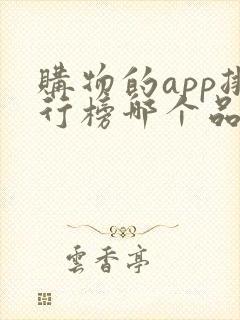 購物的app排
行榜哪个品
雲香亭